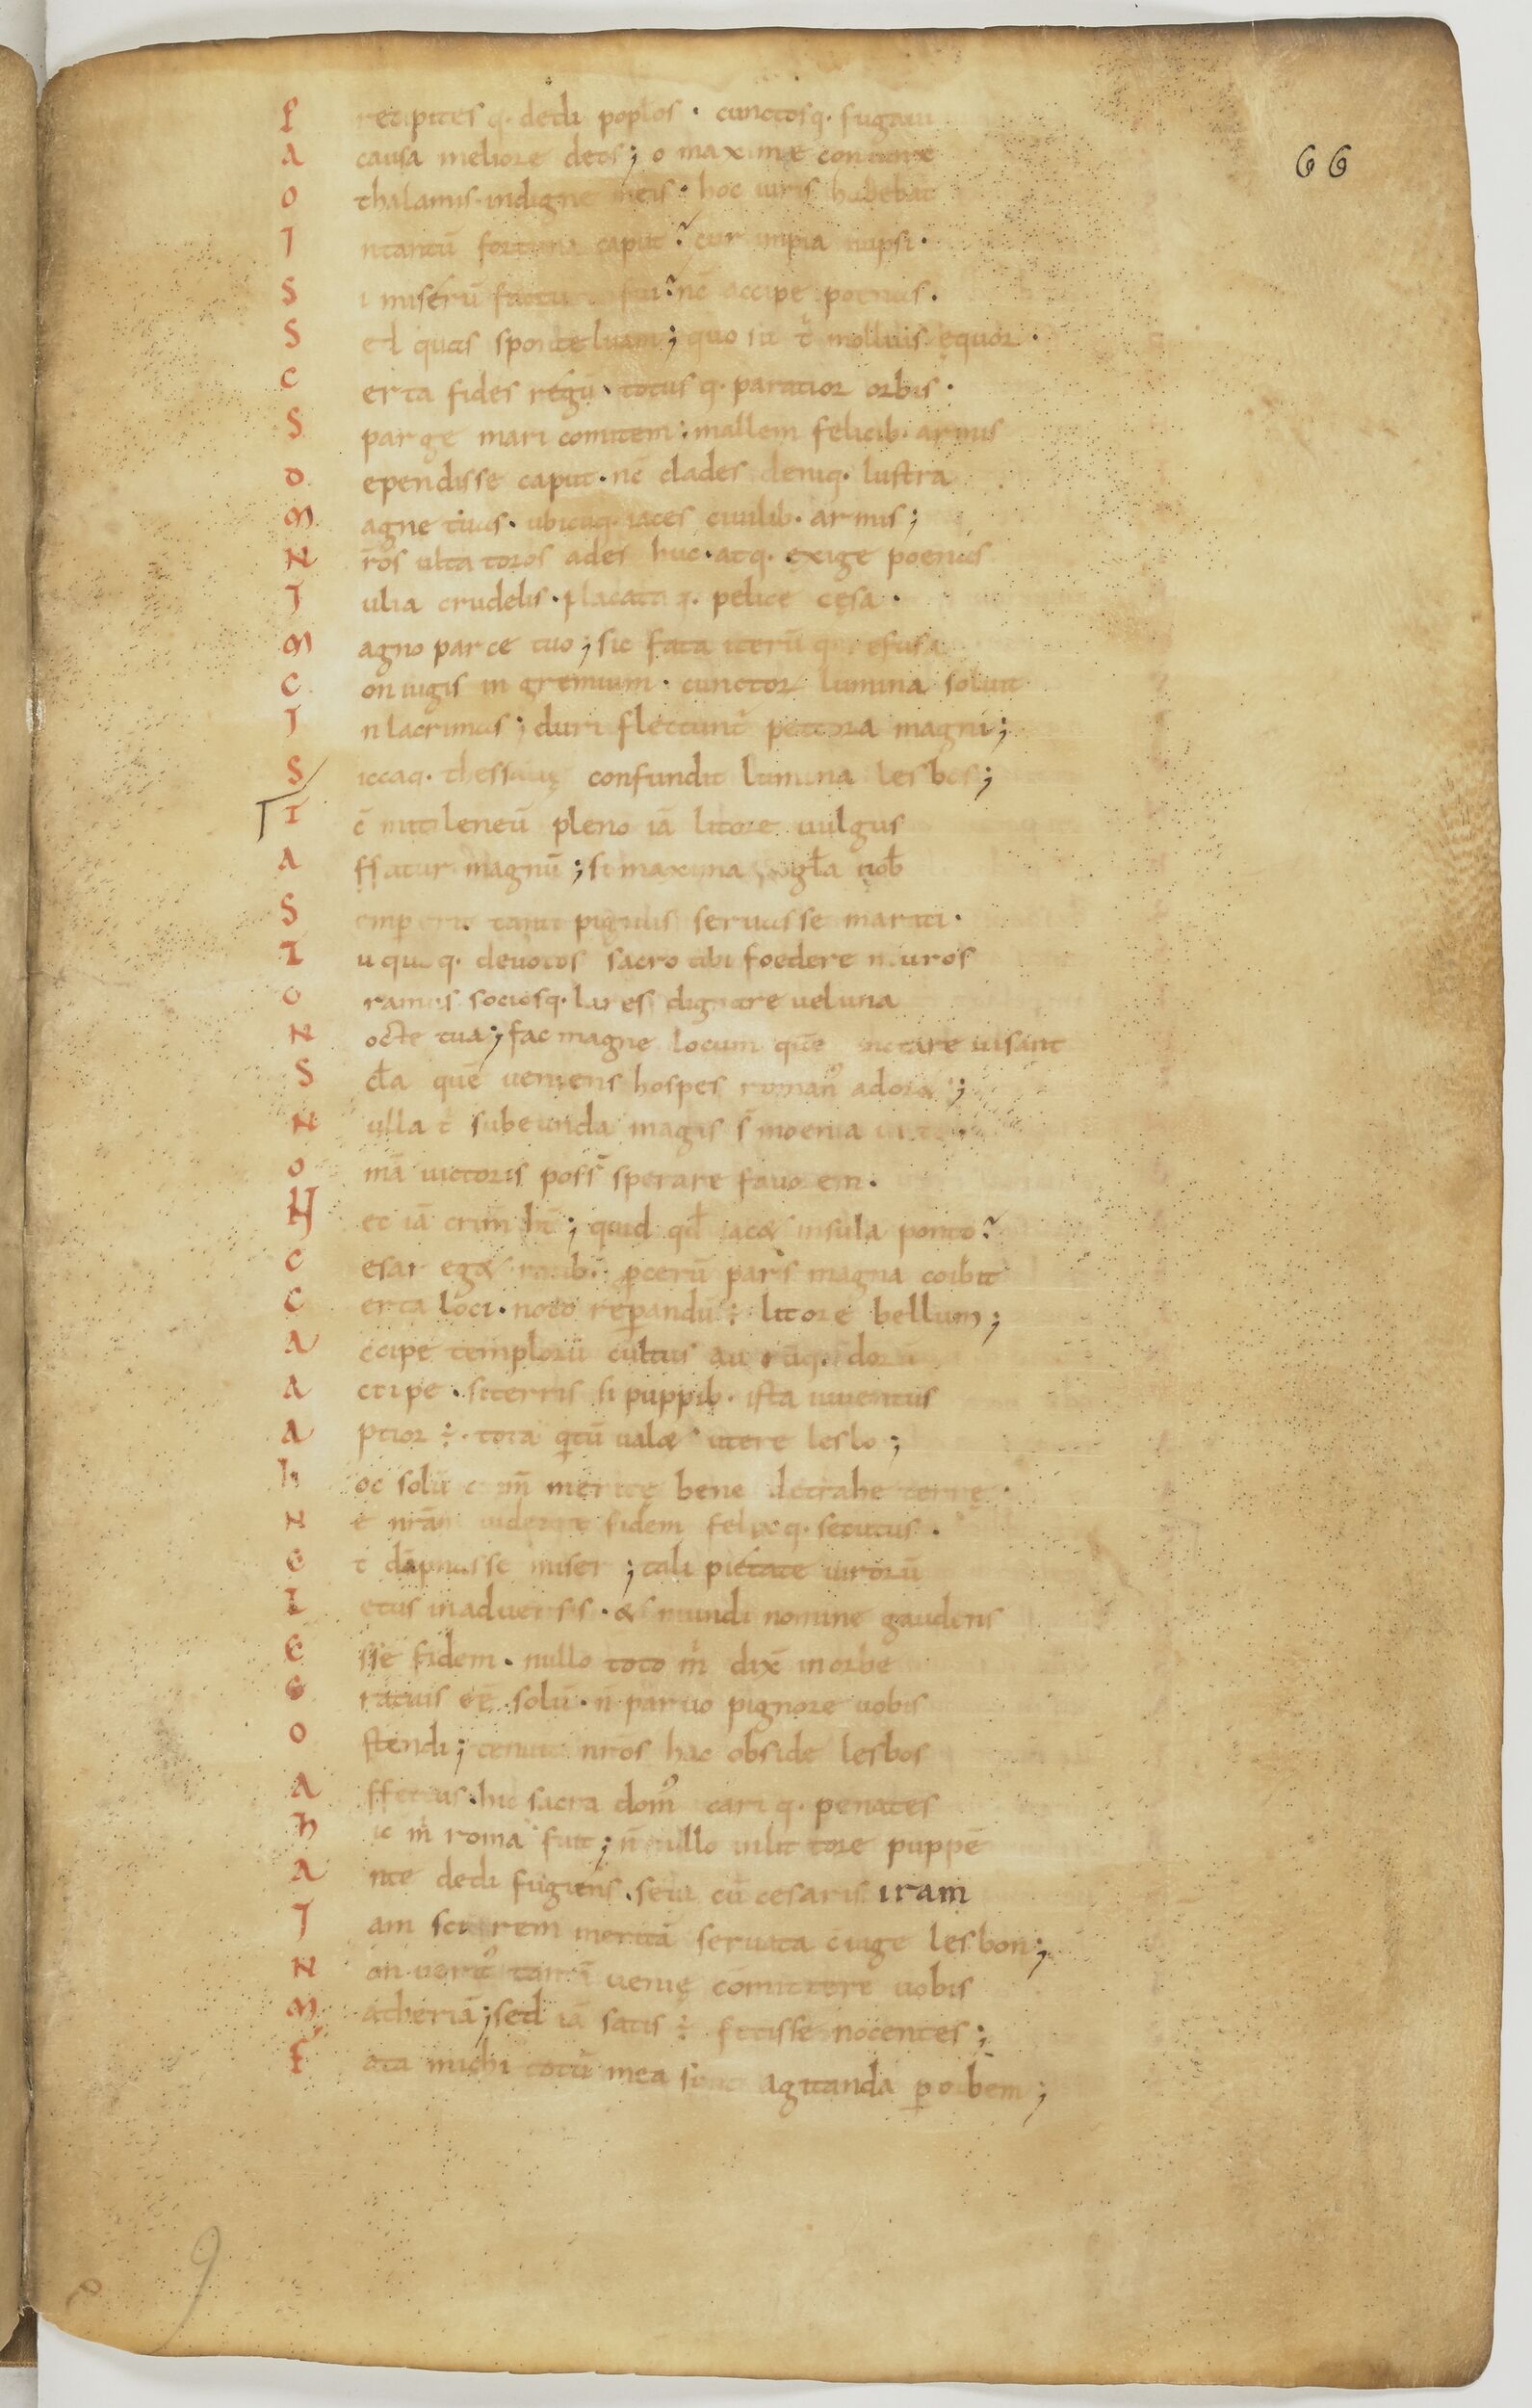 66
P recipitesq. dedi poplos · cunctosq. fugaui
A causa meliore deos ; o maxime coniunx
O thalamis · indigne meis · hoc iuris habebat
I ntantū fortuna caput ? cur impia nupsi ·
S i miserū factura fui ? nc̄ accipe poenas ·
S ed quas sponte luam ; quo sit t̄ mollius ęquor ·
C erta fides regū · totusq. paratior orbis ·
S parge mari comitem : mallem felicib. armis
D ependisse caput · nc̄ clades deniq. lustra
M agne tuas · ubicuq. iaces ciuilib. armis ;
N r̄os ulta toros ades huc · atq. exige poenas
I ulia crudelis · placataq. pelice cęsa ·
M agno parce tuo ; sic fata iterū q. refusa
C oniugis in gremium · cunctor lumina soluit
I n lacrimas ; duri flectunt̄ pectora magni ;
S iccaq. thessalię confundit lumina lesbos ;
T c̄ mitileneū pleno iā litore uulgus
A ffatur magnū ; si maxima gɫa nob̄
S emper erit tanti pignus seruasse mariti ·
T u quoq. deuotos sacro tibi foedere muros
O ramus sociosq. lares dignare uel una
N octe tua ; fac magne locum quē uisant
S cɫa quē ueniens hospes romanꝰ adoret ;
N ulla t̄ subeunda magis s̄ moenia
O mā uictoris poss̄ sperare fauorem ·
H ec iā crim̄ hn̄t ; quid qd̄ iacet insula ponto ?
C esar eget ratib. ꝓcerū pars magna coibit
C erta loci · noto reparandū ÷ litore bellum ;
A ccipe templorū cultus aurūq.
A ccipe · si terris si puppib. ista iuuentus
A ptior ÷ · tota qtū ualet utere lesbo ;
h oc solū crim̄ meritę bene detrahe terrę ·
N e nr̄am uidearę fidem felixq. secutus ·
E t dāpnasse miser ; tali pietate uirorū
L etus in aduersis · & mundi nomine gaudens
E sse fidem · nullo toto m̄ dix̄ in orbe
G ratius eē solū · n̄ paruo pignore uobis
O stendi ; tenuit nr̄os hac obside lesbos
A ffectus · hic sacra domꝰ cariq. penates
h ic m̄ roma fuit ; n̄ ullo in litore puppē
A nte dedi fugiens · seui cū cesaris iram
I am scirem meritā seruata ciuge lesbon ;
N on ueritꝰ tantā uenię comittere uobis
M atheriā ; sed iā satis ÷ fecisse nocentes ;
F ata michi totū mea sunt agitanda ꝑ orbem ;
9